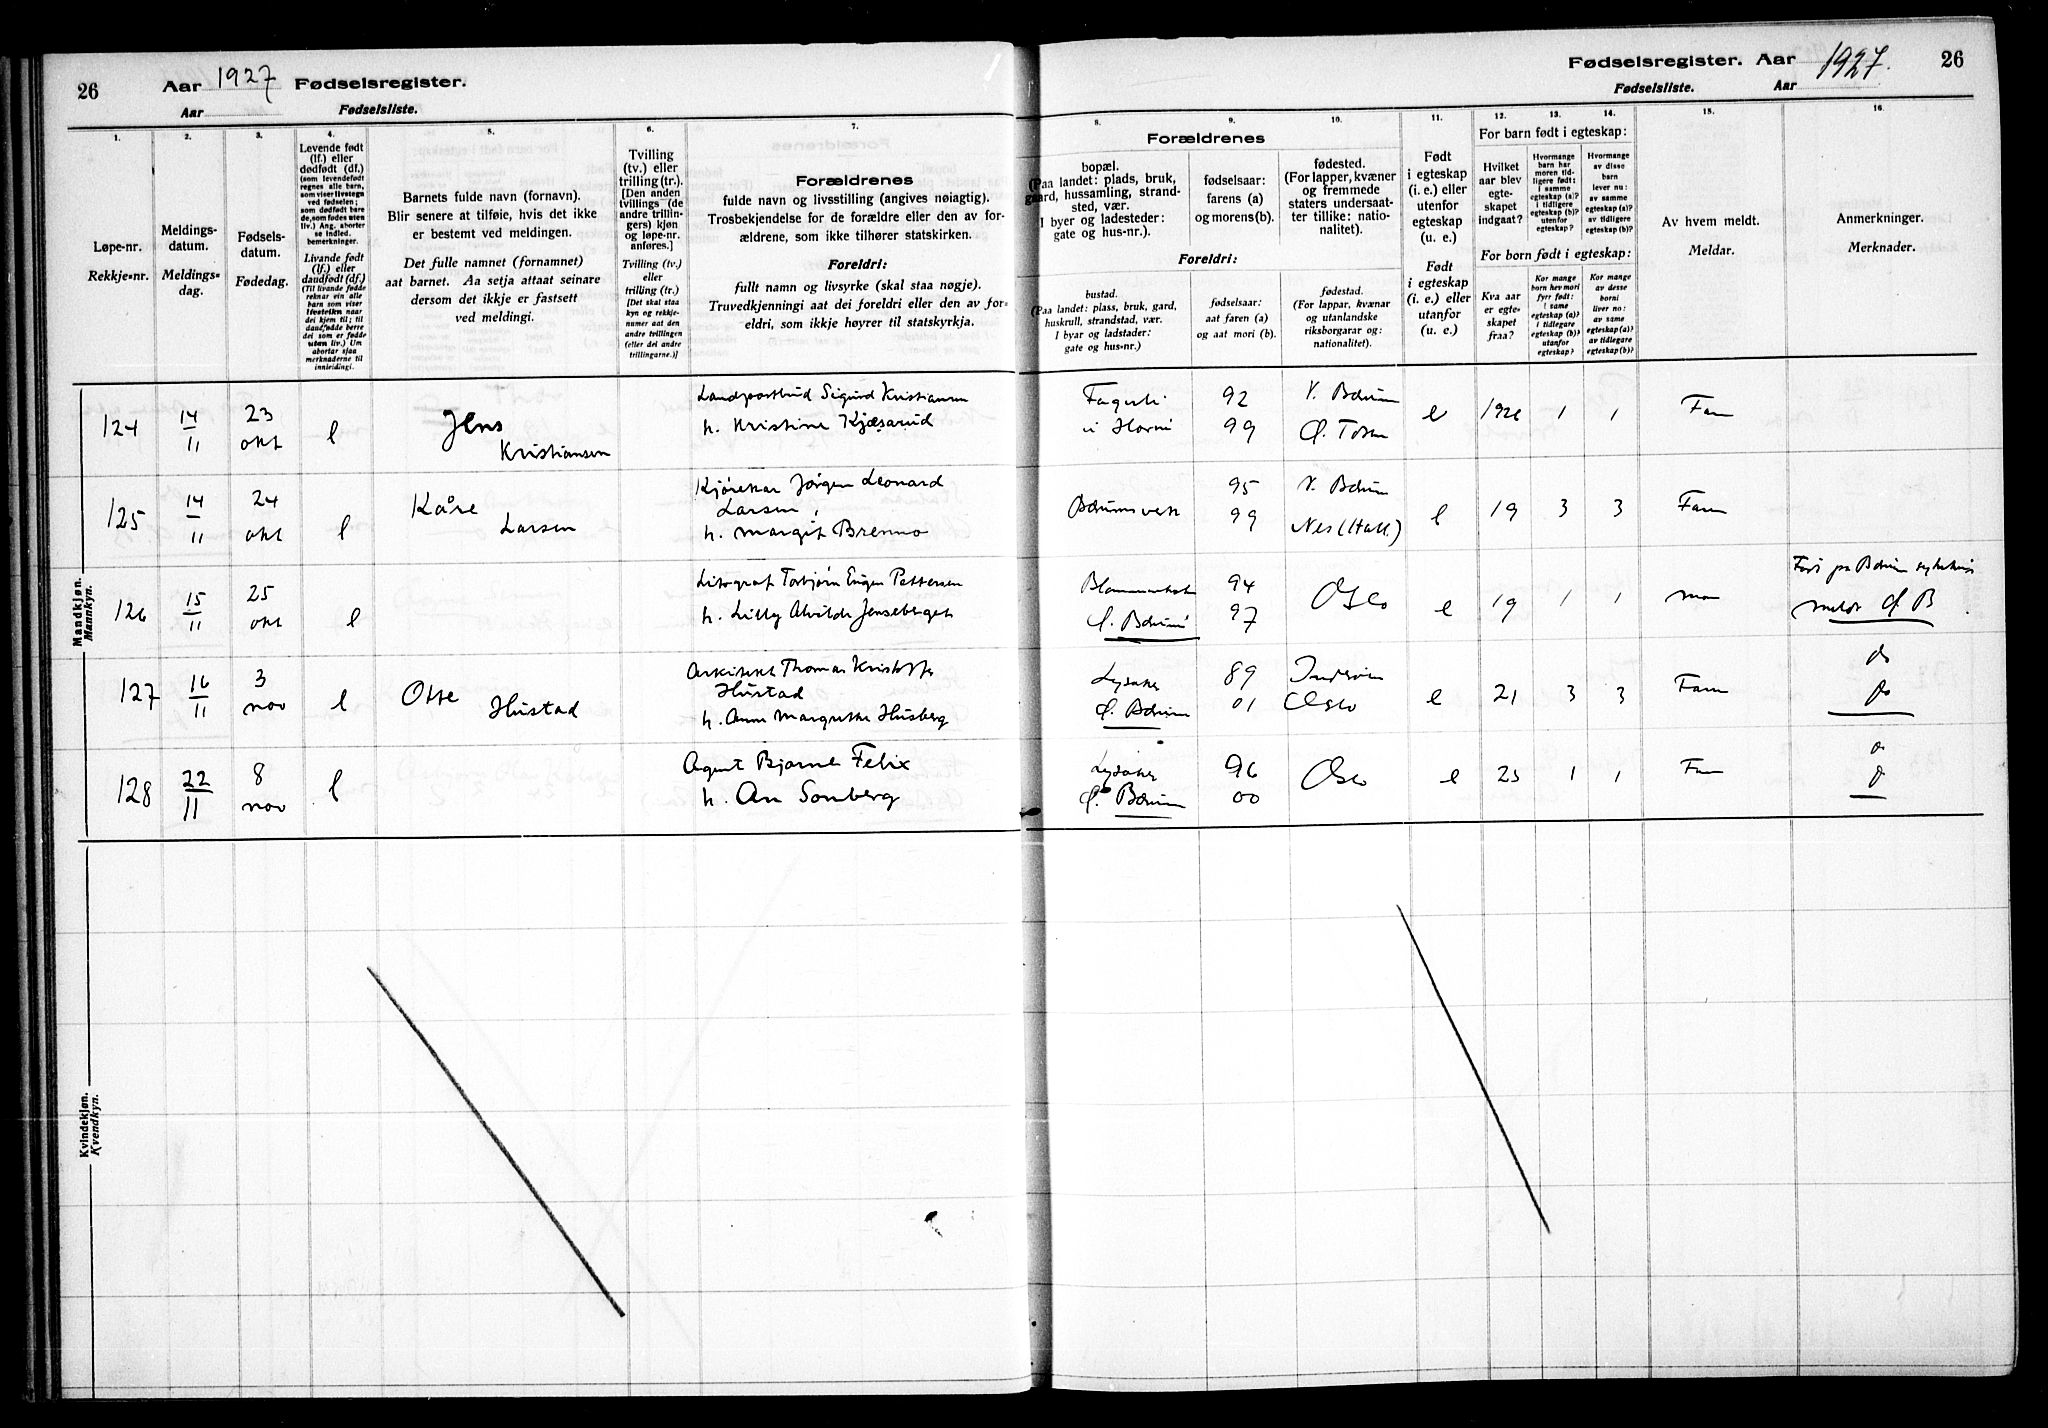 26
Aar 1927 Fødselsregister.
Aar Fødselsliste.
1.
Løpe-nr.
Rekkje-nr.
2.
Meldings-
datum.
Meldings-
dag.
3.
Fødsels-
datum.
Fødedag.
4.
Levende født
(lf.) eller
dødfødt (df.)
(som levendefødt
regnes alle barn,
som viser livstegn
ved fødselen;
som dødfødt bare
de, som fødes uten
liv.) Ang. aborter
se indled.
bemerkninger.
Livande født
(lf.) eller
daudfødt (df.)
(Til livande fødde
reknar ein alle
barn som viser
livsteikn naar
dei kjem til; til
daudfødde berre
dei som er fødde
utan liv.) Um
abortar sjaa
merknaderne til
innleidingi.
5.
Barnets fulde navn (fornavn).
Blir senere at tilføie, hvis det ikke
er bestemt ved meldingen.
Det fulle namnet (fornamnet)
aat barnet. Aa setja attaat seinare
dersom det ikkje er fastsett
ved meldingi.
6.
Tvilling
(tv.) eller
trilling (tr.).
[Den anden
tvillings (de
andre trillin-
gers) kjøn
og løpe-nr.
anføres.]
Tvilling (tv.)
eller
trilling (tr.)
[Det skal staa
kyn og rekkje-
numer aat den
andre tvillingen
(eller dei andre
trillingarne.)]
7.
Forældrenes
fulde navn og livsstilling (angives nøiagtig).
Trosbekjendelse for de forældre eller den av for-
ældrene, som ikke tilhører statskirken.
Foreldri:
fullt namn og livsyrke (skal staa nøgje).
Truvedkjenningi aat dei foreldri eller den av for-
eldri, som ikkje høyrer til statskyrkja.
Mandkjøn.
Mannkyn.
124 14/11 23 okt l Jens
Kristiansen
Landpostbud Sigurd Kristiansen
h. Kristine Kjæsarud
125 14/11 24 okt l Kåre
Larsen
Kjørekar Jørgen Leonard
Larsen,
h. Margit Brenno
126 15/11 25 okt l
Litograf Torbjørn Eugen Pettersen
h. Lilly Alvilde Jenseberget
127 16/11 3 nov l Otte
Hustad
Arkitekt Thomas Kristoffer
Hustad
h. Anna Margrethe Husberg
128 22/11 8 nov l
Agent Bjarne Felix
h. Sonberg
Kvindekjøn.
Kvendkyn.
Fødselsregister. Aar 1927. 26
Fødselsliste. Aar
8.
Forældrenes
bopæl.
(Paa landet: plads, bruk,
gaard, hussamling, strand-
sted, vær.
I byer og ladesteder:
gate og hus-nr.).
Foreldri:
bustad.
(Paa landet: plass, bruk, gard,
huskrull, strandstad, vær.
I byar og ladstader:
gate og hus-nr.)
9.
fødselsaar:
farens (a)
og morens (b).
fødselsaar:
aat faren (a)
og aat mori (b).
10.
fødested.
(For lapper, kvæner
og fremmede
staters undersaat-
ter tillike: natio-
nalitet).
fødestad.
(For lappar, kvænar
og utanlandske
riksborgarar og:
nationalitet).
11.
Født
i egteskap
(i. e.) eller
utenfor
egteskap
(u. e.)
Født
i egteskap
(i. e.) eller
utanfor
(u. e.)
For barn født i egteskap:
12.
Hvilket
aar blev
egte-
skapet
indgaat?
13.
Hvormange
barn har
moren tid-
ligere født:
i samme
egteskap (a)?
i tidligere
egteskap (b)?
utenfor
egteskap?
14.
Hvormange
av disse
barn
lever nu:
av samme
egteskap (a)?
av tidligere
egteskap (b)?
For born født i egteskap:
Kva aar
er egte-
skapet
fraa?
Kor mange
born hev mori
fyrr født:
i same
egteskap (a)?
i tidlegare
egteskap (b)?
utanfor
egteskap?
Kor mange
av desse
borni
liver no:
av same
egteskap (a)?
av tidlegare
egteskap (b)?
15.
Av hvem meldt.
Meldar.
16.
Anmerkninger.
Merknader.
92 V. Bærum
99 e 1926 1 1 Far
Bærumsverk 95 V. Bærum
99 Nes (Hall.) e 19 3 3 Far
Blommenholm 94 Oslo
Ø. Bærum 97 e 19 1 1 mor
Født på Bærum sykehus
meldt Ø. B.
Lysaker 89 Inderøen
Ø. Bærum 01 Oslo e 21 3 3 Far
do
do
Lysaker 96 Oslo
Ø. Bærum 00 e 25 1 1 Far